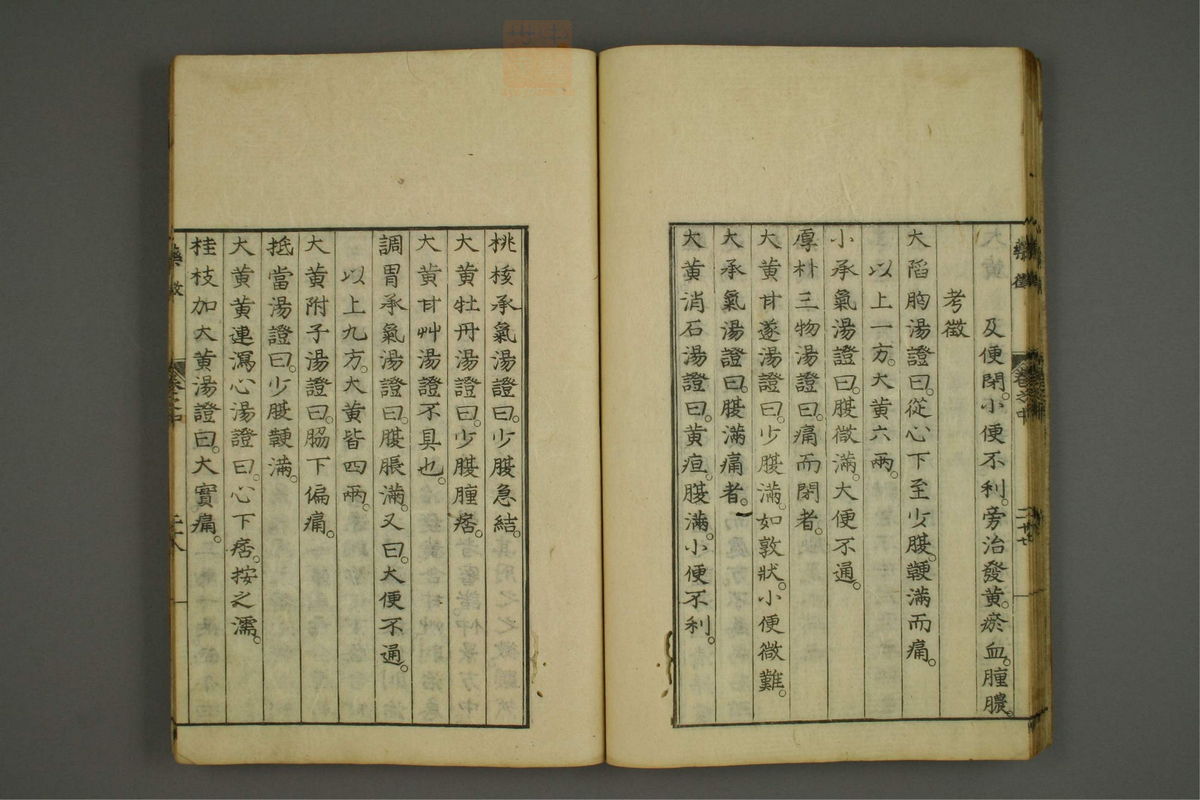 及便閉。小便不利。旁治發黃。瘀血。腫膿。
考徵
大陷胸湯證曰。從心下至少腹。鞕滿而痛。
以上一方。大黃六兩。
小承氣湯證曰。腹微滿。大便不通。
厚朴三物湯證曰。痛而閉者。
大黃甘遂湯證曰。少腹滿。如敦狀。小便微難。
大承氣湯證曰。腹滿痛者。
大黃消石湯證曰。黃疸。腹滿。小便不利。
藥徵
卷之中
二十七
桃核承氣湯證曰。少腹急結。
大黃牡丹湯證曰。少腹腫痞。
大黃甘艸湯證不具也。
調胃承氣湯證曰。腹脹滿。又曰。大便不通。
以上九方。大黃皆四兩。
大黃附子湯證曰。脇下偏痛。
抵當湯證曰。少腹鞕滿。
大黃黃連瀉心湯證曰。心下痞。按之濡。
桂枝加大黃湯證曰。大實痛。
藥徵
卷之中
二十八